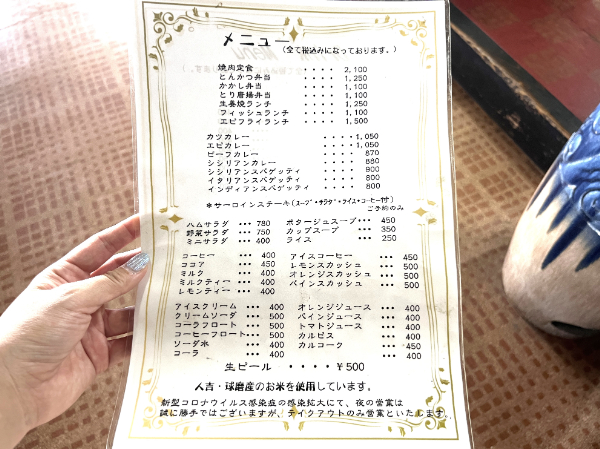 メニュー (全て税込みになっております。)
焼肉定食 ・・・・ 2,100
とんかつ弁当 ・・・・ 1,250
かかし弁当 ・・・・ 1,100
とり唐揚弁当 ・・・・ 1,100
生姜焼ランチ ・・・・ 1,250
フィッシュランチ ・・・・ 1,100
エビフライランチ ・・・・ 1,500
カツカレー ・・・・ 1,050
エビカレー ・・・・ 1,050
ビーフカレー ・・・・ 870
シシリアンカレー ・・・・ 880
シシリアンスパゲッティ ・・・・ 900
イタリアンスパゲッティ ・・・・ 800
インディアンスパゲッティ ・・・・ 800
*サーロインステーキ(スープ・サラダ・ライス・コーヒー付)
ご予約のみ
ハムサラダ ・・・ 780
野菜サラダ ・・・ 750
ミニサラダ ・・・ 400
ポタージュスープ・・・ 450
カップスープ ・・・ 350
ライス ・・・ 250
コーヒー ・・・ 400
ココア ・・・ 450
ミルク ・・・ 400
ミルクティー ・・・ 400
レモンティー ・・・ 400
アイスコーヒー ・・・ 450
レモンスカッシュ ・・・ 500
オレンジスカッシュ ・・・ 500
パインスカッシュ ・・・ 500
アイスクリーム ・・・ 400
クリームソーダ ・・・ 500
コーラフロート ・・・ 500
コーヒーフロート・・・ 500
ソーダ水 ・・・ 400
コーラ ・・・ 400
オレンジジュース ・・・ 400
パインジュース ・・・ 400
トマトジュース ・・・ 400
カルピス ・・・ 400
カルコーク ・・・ 450
生ビール ・・・・ ¥500
人吉・球磨産のお米を使用しています。
新型コロナウイルス感染症の感染拡大にて、夜の営業は
誠に勝手ではございますが、テイクアウトのみ営業といたします。